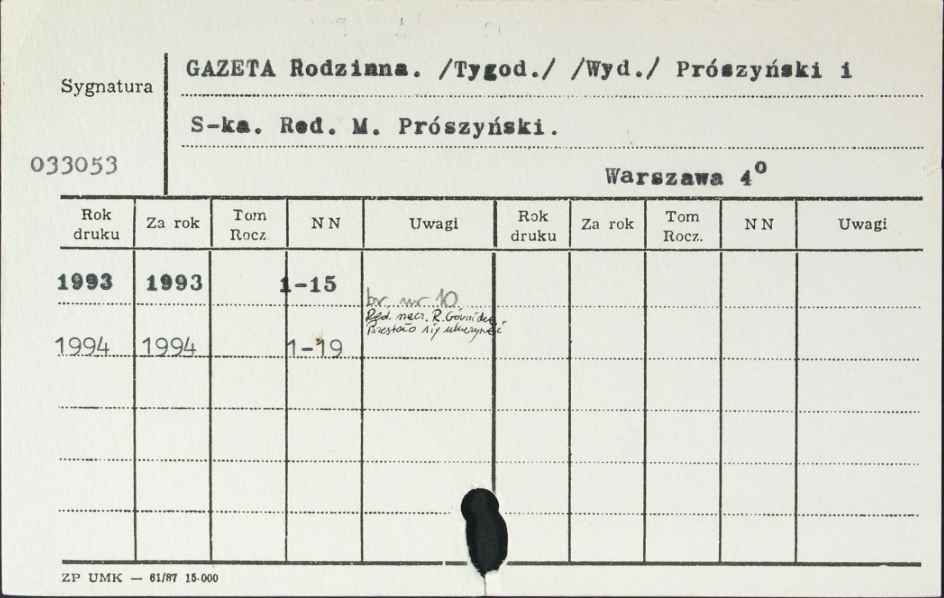 GAZETA Rodzinna. /Tygod./ /Wyd./ Prószyński i
Sygnatura
S-ka. Red. M. Prószyński.
033053
Warszawa 4º
Rok druku Za rok Tom Rocz. NN Uwagi Rok druku Za rok Tom Rocz. NN Uwagi
1993 1993 1-15
br. nr 10
Red. nacz. R.
Przestało się ukazywać
1994 1994 1-19
ZP UMK — 61/87 15-000